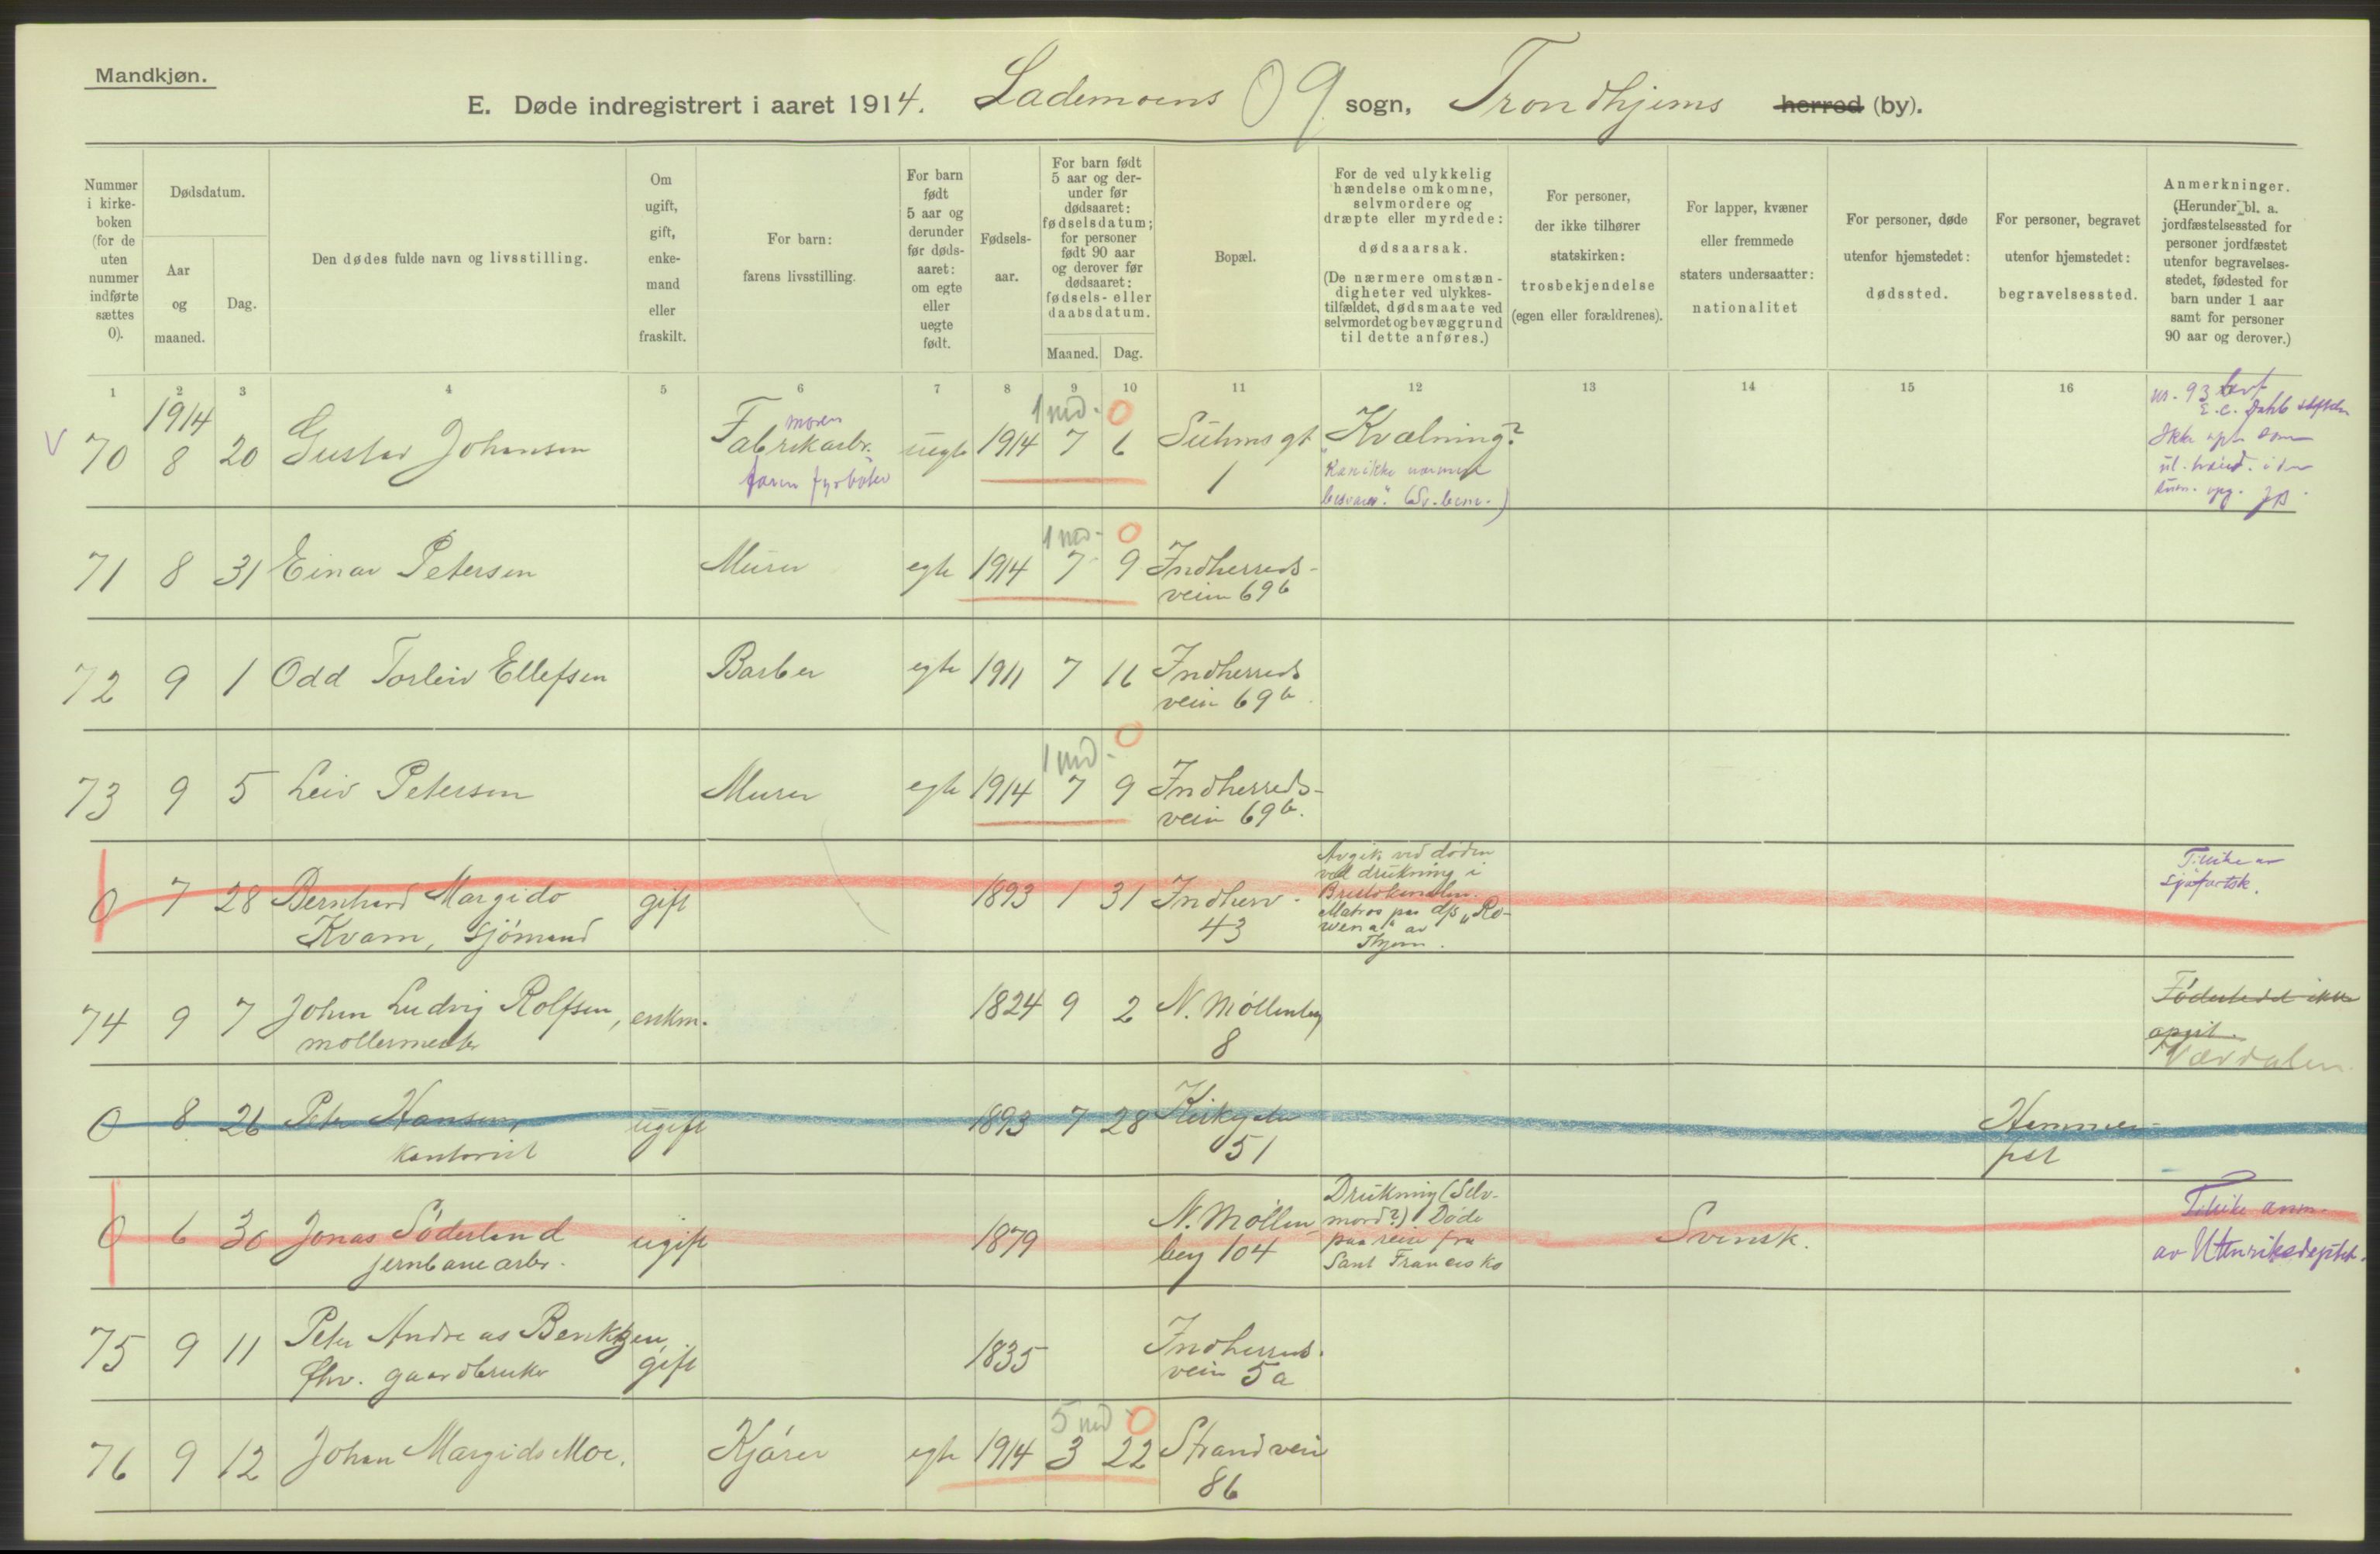 Mandkjøn.
E. Døde indregistrert i aaret 1914. Lademoens 09 sogn, Trondhjems herred (by).
Nummer i kirke-boken (for de uten nummer indførte sættes 0).
Dødsdatum.
Aar og maaned.
Dag.
Den dødes fulde navn og livsstilling.
Om ugift, gift, enke-mand eller fraskilt.
For barn: farens livsstilling.
For barn født 5 aar og derunder før døds-aaret: om egte eller uegte født.
Fødsels-aar.
For barn født 5 aar og der-under før dødsaaret: fødselsdatum; for personer født 90 aar og derover før dødsaaret: fødsels- eller daabsdatum.
Maaned. Dag.
Bopæl.
For de ved ulykkelig hændelse omkomne, selvmordere og dræpte eller myrdede: dødsaarsak. (De nærmere omstæn-digheter ved ulykkes-tilfældet, dødsmaate ved selvmordet og bevæggrund til dette anføres.)
For personer, der ikke tilhører statskirken: trosbekjendelse (egen eller forældrenes).
For lapper, kvæner eller fremmede staters undersaatter: nationalitet
For personer, døde utenfor hjemstedet: dødssted.
For personer, begravet utenfor hjemstedet: begravelsessted.
Anmerkninger. (Herunder bl. a. jordfæstelsessted for personer jordfæstet utenfor begravelses-stedet, fødested for barn under 1 aar samt for personer 90 aar og derover.)
1 2 3 4 5 6 7 8 9 10 11 12 13 14 15 16
1914
V 70 8 20 Gustav Johansen Fabrikarbr. uegte 1914 7 6 Suhmsgt Kvælning?
moren
faren fyrbøter
1 md. 0
1
"Kan ikke nærmere
(Sv. bem.)
nr. 93
71 8 31 Einar Petersen Murer egte 1914 7 9 Indherreds-
1 md. 0
veien 69 b
72 9 1 Odd Torleiv Ellefsen Barber egte 1911 7 16 Indherreds
vein 69 b.
73 9 5 Leiv Petersen Murer egte 1914 7 9 Indherreds-
1 md. 0
vein 69 b.
0 7 28 Bernhard Margido gift 1893 1 31 Indherr.
Kvam, sjömand
43
Avgik ved döden
ved drukning i
Bristolkanalen.
Matros paa d/s "Ro-
wena" av
Thjem.
Tilsike av
sjøfartsk.
74 9 7 Johan Ludvig Rolfsen, enkm. 1824 9 2 N. Möllenberg
möllermester
8
Födested ikke
opgit.
Værdalen
0 8 26 Peter Hansen, ugift 1893 7 28 Kirkegaten
kontorist
51
Hammer-
fest
0 6 30 Jonas Söderlund ugift 1879 N. Möllen-
jernbanearbr.
berg 104
Drukning (Selv-
mord?) Döde
paa reise fra
Sant Francisko
Svensk.
Tilsike anm.
av Utenriksdeptet.
75 9 11 Peter Andreas Benktzen, gift 1835 Indherreds.
fhv. gaardbruker
vein 5a
76 9 12 Johan Margido Moe. Kjörer egte 1914 3 22 Strandvein
5 md 0
86